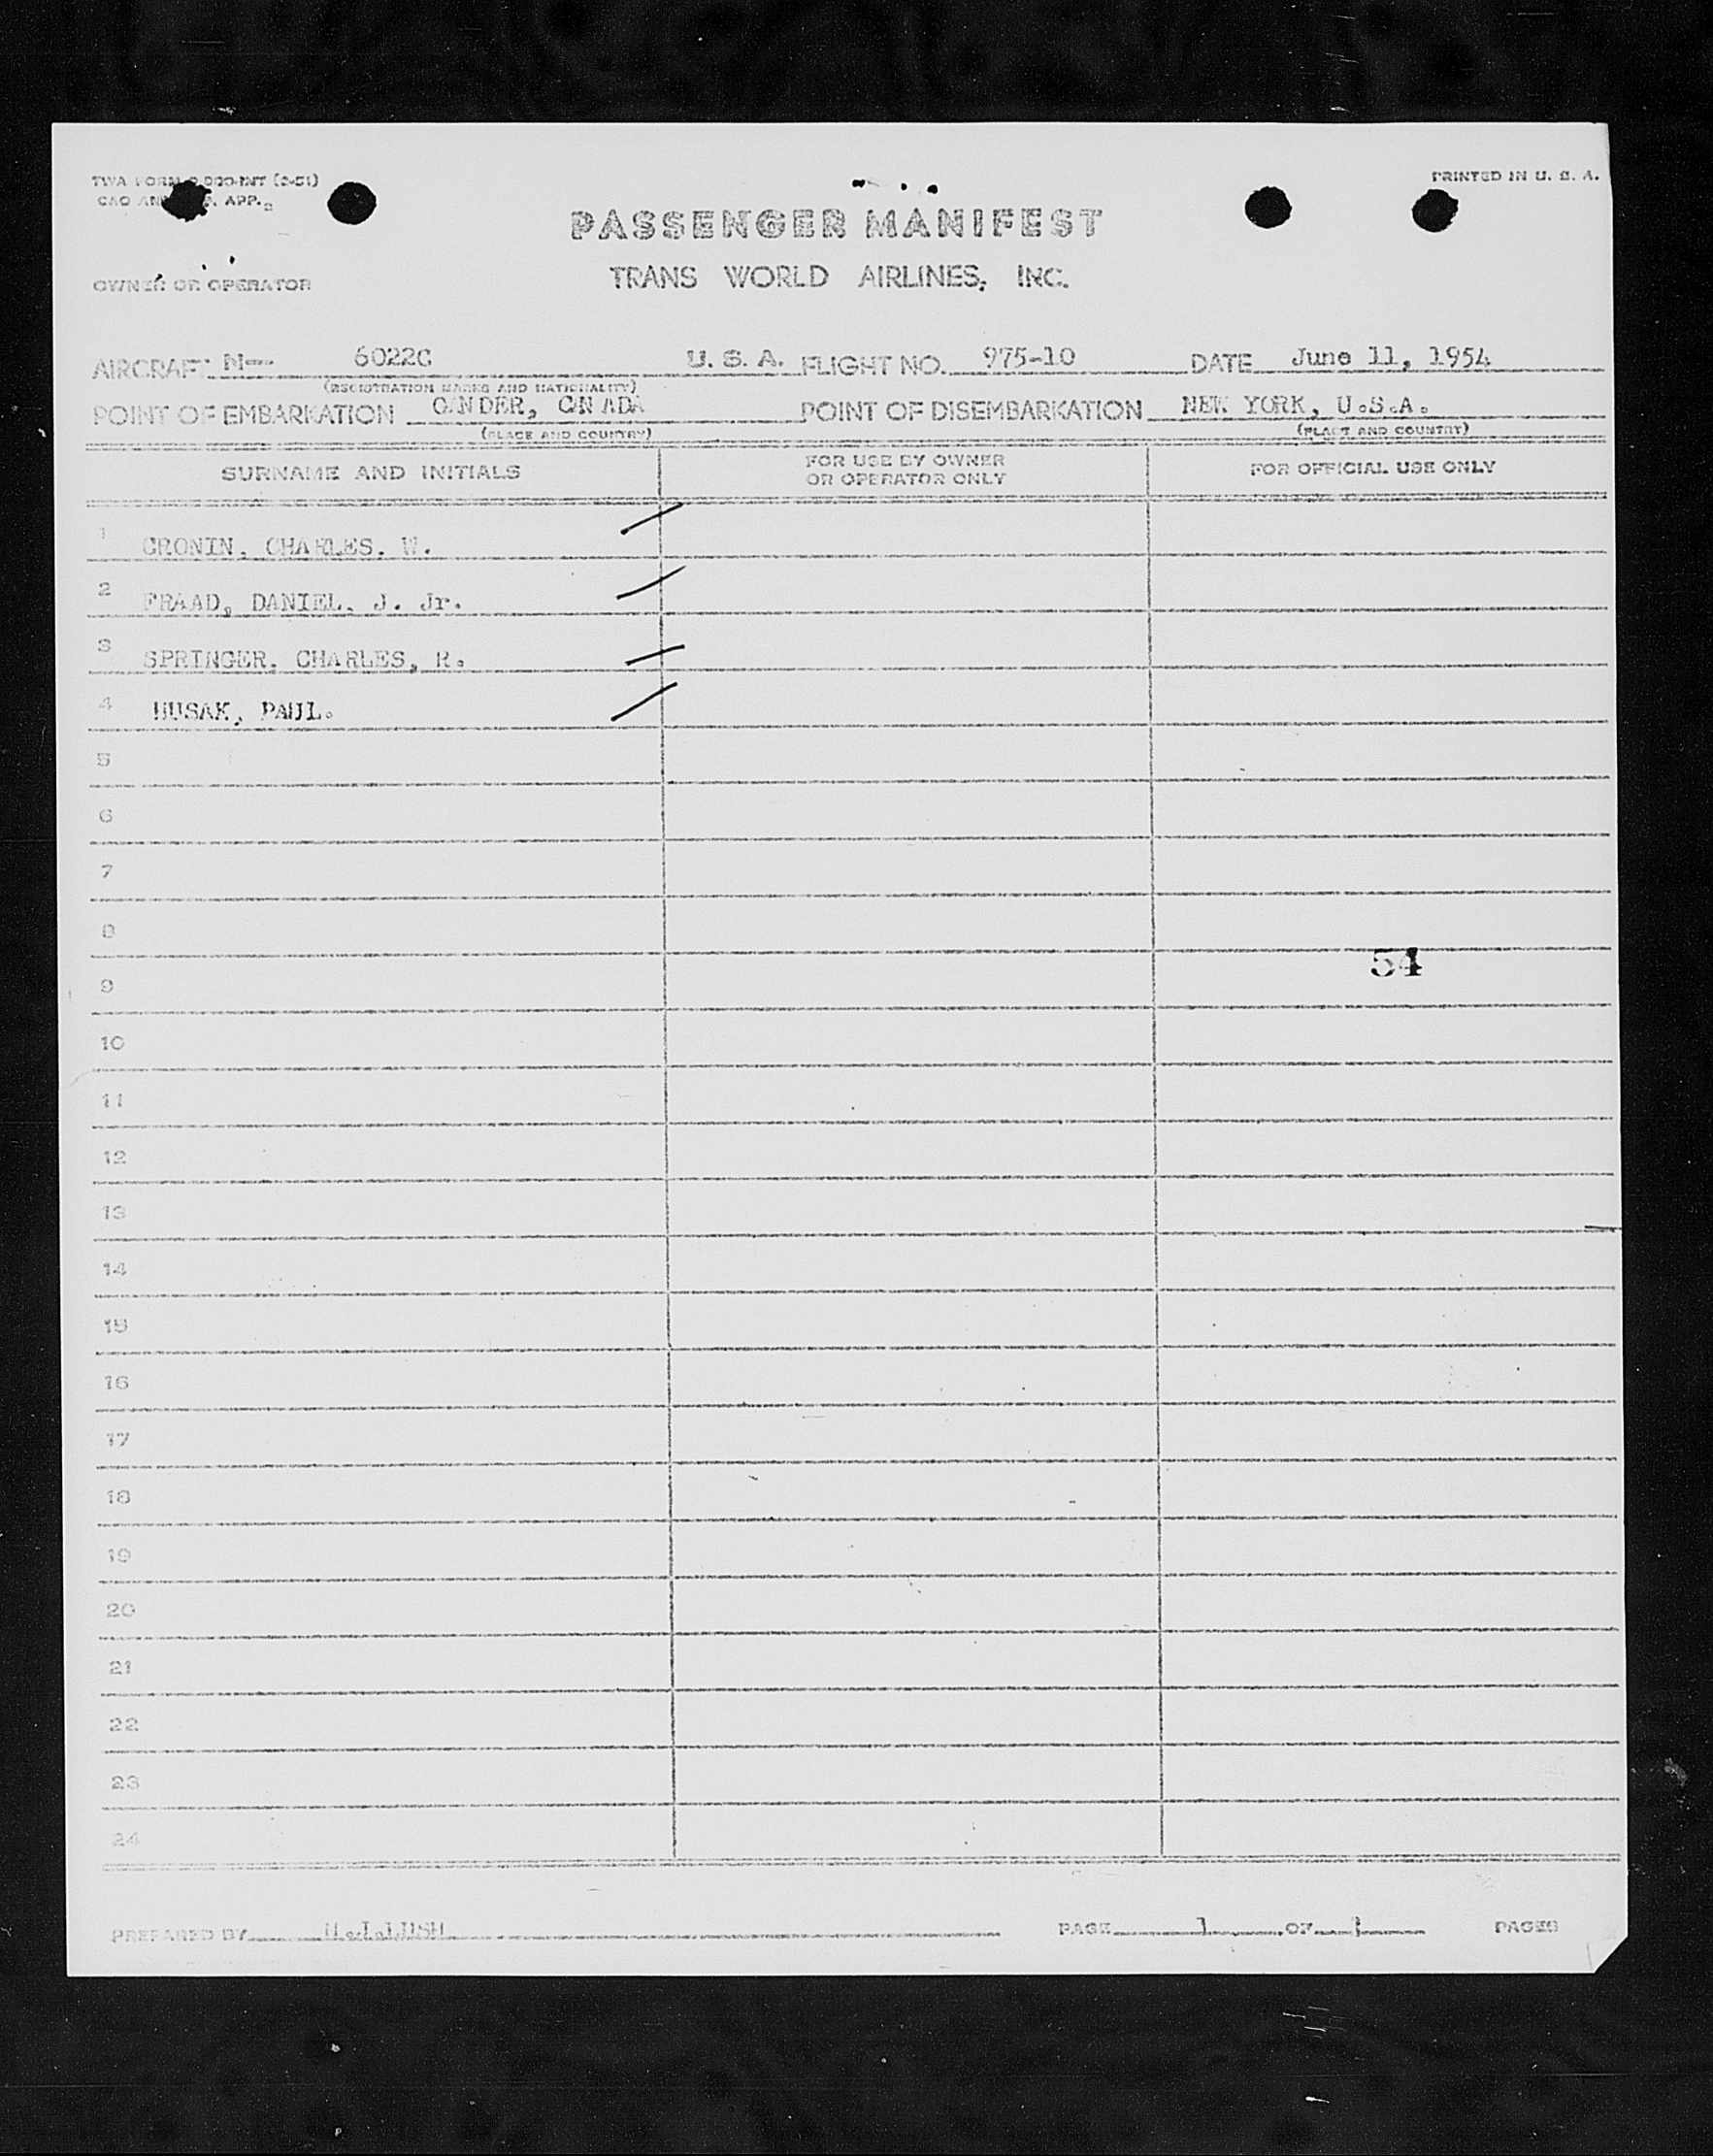 TWA FORM
PRINTED IN U. S. A.
APP.
PASSENGER MANIFEST
OWNER OR OPERATOR
TRANS WORLD AIRLINES, INC.
AIRCRAFT N-- 6022C U. S. A. FLIGHT NO. 975-10 DATE June 11, 1954
(REGISTRATION MARKS AND NATIONALITY)
POINT OF EMBARKATION GANDER, CANADA POINT OF DISEMBARKATION NEW YORK, U.S.A.
(PLACE AND COUNTRY) (PLACE AND COUNTRY)
SURNAME AND INITIALS FOR USE BY OWNER OR OPERATOR ONLY FOR OFFICIAL USE ONLY
1 CRONIN, CHARLES. W.
2 FRAAD, DANIEL. J. Jr.
3 SPRINGER. CHARLES, R.
4 HUSAK, PAUL.
5
6
7
8
54
9
10
11
12
13
14
15
16
17
18
19
20
21
22
23
24
PREPARED BY PAGE 1 OF 1 PAGES